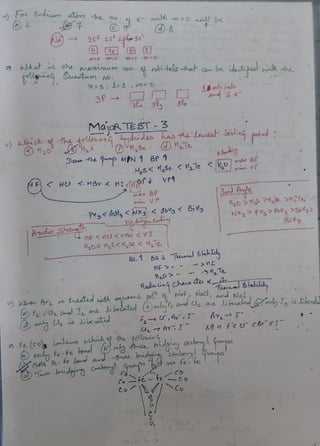 For Sodium atom the no. of e⁻ with m=0 will be.
(a) 2 (b) 7 (c) 9 (d) 8
Na → 1s² 2s² 2p⁶ 3s¹
m=0 m=0 m=0 m=0
What is the maximum no. of orbitals that can be identified with the
following Quantum no.
n=3, l=1, m=0
3P → 3Px 3Py 3Pz
and 2 e⁻
MajorTEST - 3
Which of the following hydrides has the lowest boiling point?
(a) H₂O (b) H₂S (c) H₂Se (d) H₂Te
Down the group MP↑ BP↑
H₂S < H₂Se < H₂Te < H₂O
HF < HCl < HBr < HI
PH₃ < AsH₃ < NH₃ < SbH₃ < BiH₃
Bond Angle
H₂O > H₂S > H₂Se > H₂Te
NH₃ > PH₃ > AsH₃ > SbH₃ >
BiH₃
Acidic Strength
HF < HCl < HBr < HI
H₂O < H₂S < H₂Se < H₂Te
BL↑ BS↓ Thermal Stability
HF > - - -> HI
H₂O > - - -> H₂Te
Reducing Character ∝ 1/Thermal Stability
When Br₂ is treated with aqueous solⁿ of NaF, NaCl, and NaI
(a) F₂, Cl₂ and I₂ are liberated (b) only F₂ and Cl₂ are liberated (c) only I₂ is liberated
(d) only Cl₂ is liberated
F₂ → Cl⁻, Br⁻, I⁻ Br₂ → I⁻
Cl₂ → Br⁻, I⁻ RA ⇒ F⁻ < Cl⁻ < Br⁻ < I⁻
Fe₂(CO)₉ contains which of the following
(a) only Fe-Fe bond (b) only three bridging carbonyl groups
(c) Both Fe-Fe bond and three bridging carbonyl groups
(d) Two bridging carbonyl groups
CO CO
CO — Fe — Fe — CO
CO CO